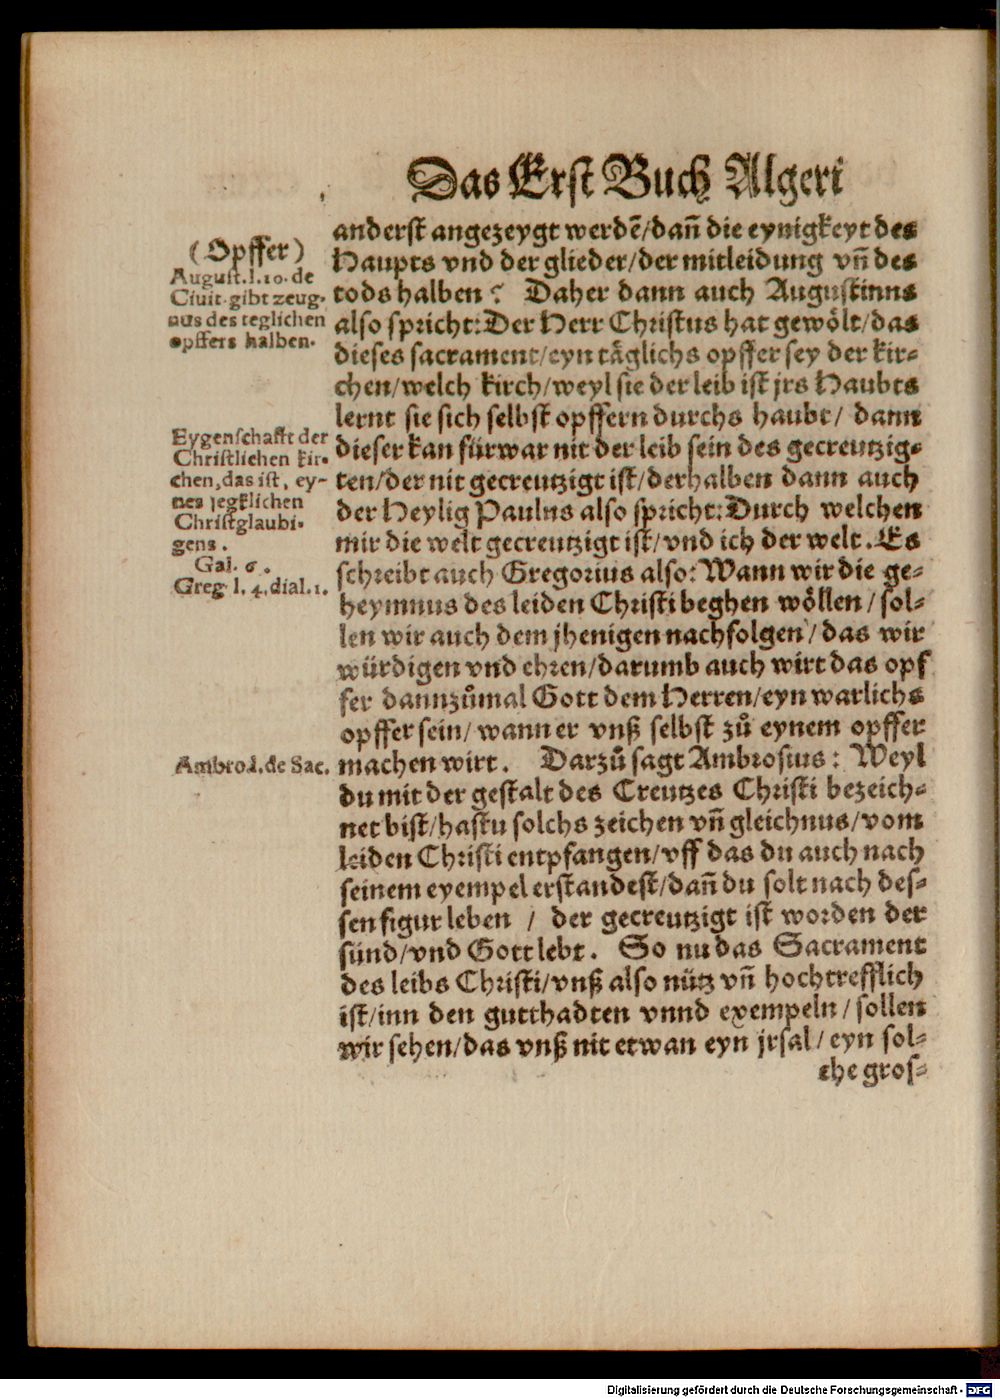 Das Erst Buch Algeri
anderst angezeygt werdē/dañ die eynigkeyt des
Haupts vnd der glieder/der mitleidung vñ des
tods halben? Daher dann auch Augustinns
also spricht:Der Herr Christus hat gewölt/das
dieses sacrament/eyn täglichs opffer sey der kir-
chen/welch kirch/weyl sie der leib ist jrs Haubts
lernt sie sich selbst opffern durchs haubt/ dann
dieser kan fürwar nit der leib sein des gecreutzig-
ten/der nit gecreutzigt ist/derhalben dann auch
der Heylig Paulus also spricht:Durch welchen
mir die welt gecreutzigt ist/vnd ich der welt. Es
schreibt auch Gregorius also: Wann wir die ge-
heymnus des leiden Christi beghen wöllen/sol-
len wir auch dem jhenigen nachfolgen/das wir
würdigen vnd ehren/darumb auch wirt das opf
fer dannzůmal Gott dem Herren/eyn warlichs
opffer sein/wann er vnß selbst zů eynem opffer
machen wirt. Darzů sagt Ambrosius: Weyl
du mit der gestalt des Creutzes Christi bezeich-
net bist/hastu solchs zeichen vñ gleichnus/vom
leiden Christi entpfangen/vff das du auch nach
seinem eyempel erstandest/dañ du solt nach des-
sen figur leben / der gecreutzigt ist worden der
sünd/vnd Gott lebt. So nu das Sacrament
des leibs Christi/vnß also nütz vñ hochtrefflich
ist/inn den gutthadten vnnd exempeln/sollen
wir sehen/das vnß nit etwan eyn jrsal/eyn sol-
che gros-
(Opffer)
August.l.10.de
Ciuit.gibt zeug-
nus des teglichen
opffers halben.
Eygenschafft der
Christlichen kir-
chen,das ist, ey-
nes jegklichen
Christglaubi-
gens.
Gal. 6.
Greg l. 4. dial. 1.
Ambro.l.de Sac.
Digitalisierung gefördert durch die Deutsche Forschungsgemeinschaft - DFG